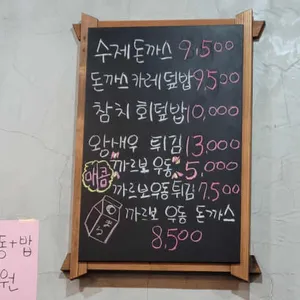 수제돈까스 9,500
돈까스카레덮밥 9,500
참치회덮밥 10,000
왕새우 튀김 13,000
매콤 까르보우동 5,000
까르보우동튀김 7,500
까르보 우동 돈까스
8,500
동+밥
원